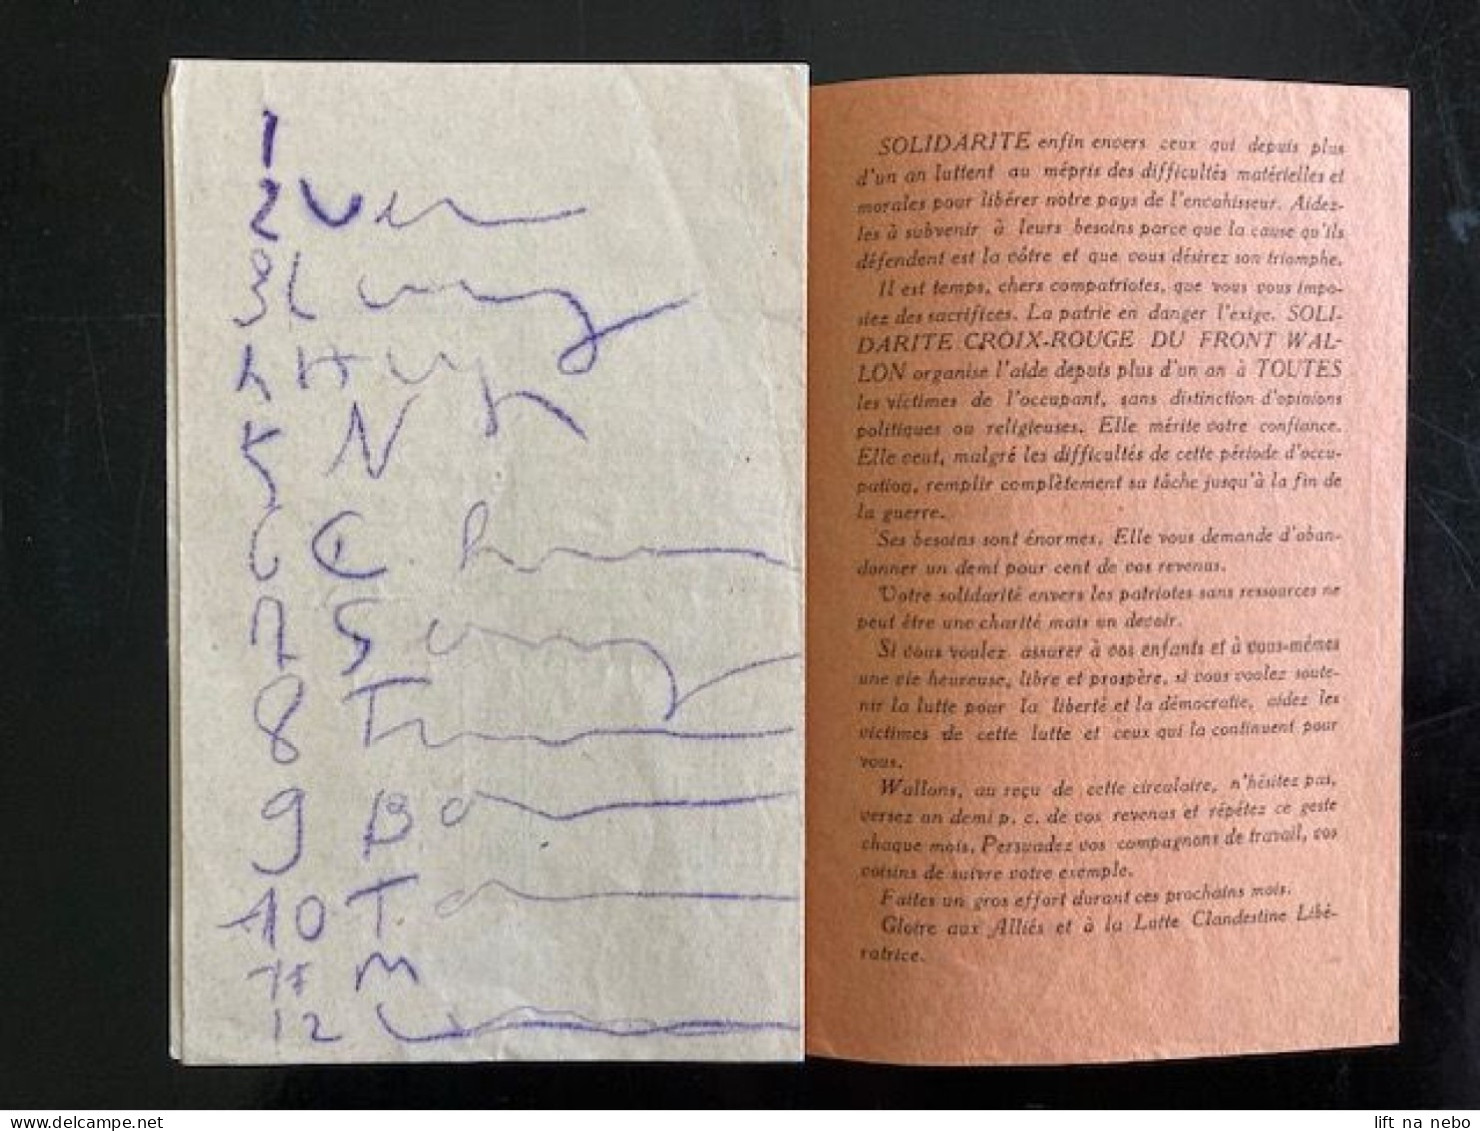 1
2
3
4
5 N
6 C.
7 S
8 T
9 B.
10 T.
11 M
12
SOLIDARITE enfin envers ceux qui depuis plus
d'un an luttent au mépris des difficultés matérielles et
morales pour libérer notre pays de l'envahisseur. Aidez-
les à subvenir à leurs besoins parce que la cause qu'ils
défendent est la vôtre et que vous désirez son triomphe.
Il est temps, chers compatriotes, que vous vous impo-
siez des sacrifices. La patrie en danger l'exige. SOLI-
DARITE CROIX-ROUGE DU FRONT WAL-
LON organise l'aide depuis plus d'un an à TOUTES
les victimes de l'occupant, sans distinction d'opinions
politiques ou religieuses. Elle mérite votre confiance.
Elle veut, malgré les difficultés de cette période d'occu-
pation, remplir complètement sa tâche jusqu'à la fin de
la guerre.
Ses besoins sont énormes. Elle vous demande d'aban-
donner un demi pour cent de vos revenus.
Votre solidarité envers les patriotes sans ressources ne
peut être une charité mais un devoir.
Si vous voulez assurer à vos enfants et à vous-mêmes
une vie heureuse, libre et prospère, si vous voulez soute-
nir la lutte pour la liberté et la démocratie, aidez les
victimes de cette lutte et ceux qui la continuent pour
vous.
Wallons, au reçu de cette circulaire, n'hésitez pas,
versez un demi p. c. de vos revenus et répétez ce geste
chaque mois. Persuadez vos compagnons de travail, vos
voisins de suivre votre exemple.
Faites un gros effort durant ces prochains mois.
Gloire aux Alliés et à la Lutte Clandestine Libé-
ratrice.
lift na nebo